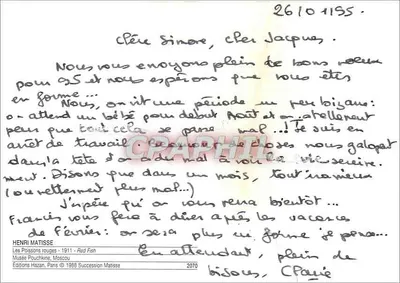 26/01/95.
Chère Simone, cher Jacques.
Nous vous envoyons plein de bons vœux
pour 95 et nous espérons que vous êtes
en forme...
Nous, on vit une période un peu bizarre:
on attend un bébé pour début Août et on a tellement
peur que tout cela se passe mal...! Je suis en
arrêt de travail choses nous galopent
dans la tête d'où du mal à voir la vie sereine-
ment. Disons que dans un mois, tout ira mieux
(ou nettement plus mal...)
J'espère qu'on vous verra bientôt...
Francis vous fera à dîner après les vacances
de Février: on sera plus en forme je pense...
En attendant, plein de
bisous, Claire
HENRI MATISSE
Les Poissons rouges - 1911 - Red Fish
Musée Pouchkine, Moscou
Editions Hazan, Paris © 1988 Succession Matisse 2070